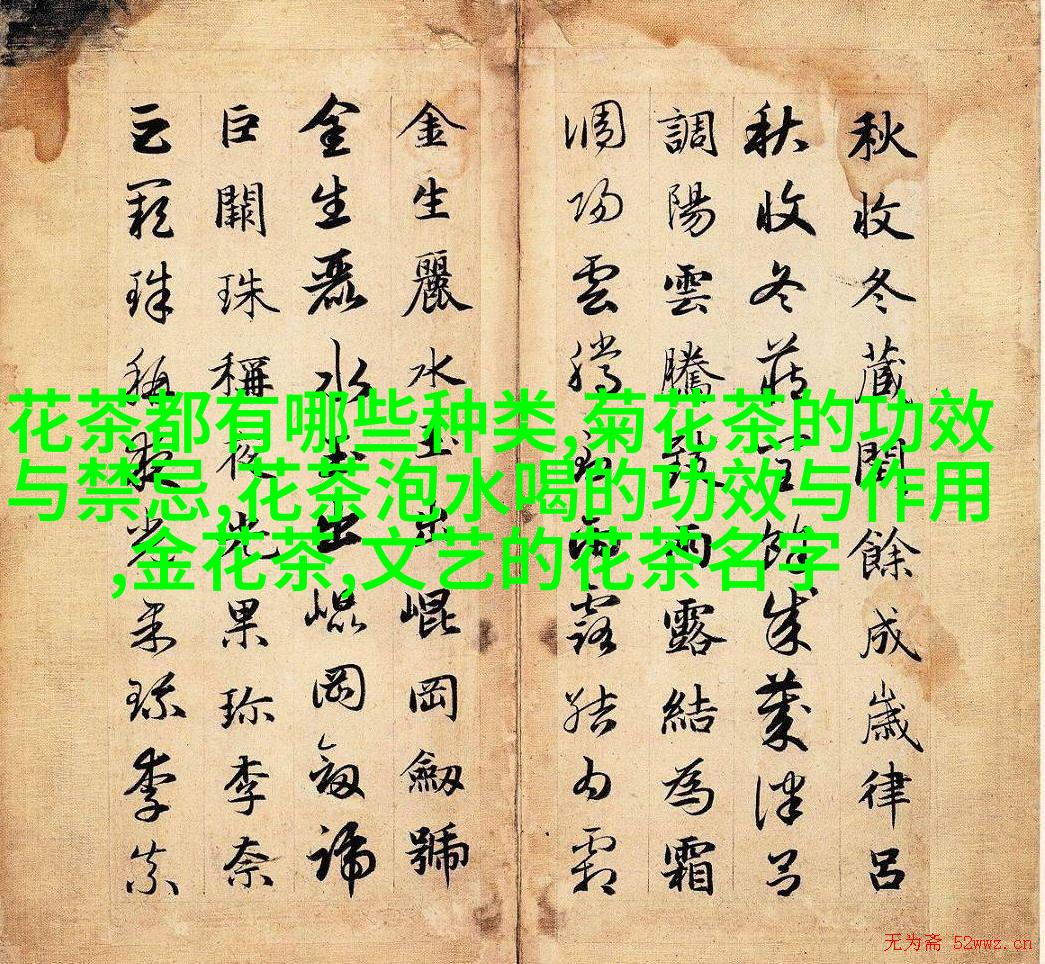 花茶都有哪些种类,菊花茶的功效
与禁忌,花茶泡水喝的功效与作用
,金花茶,文艺的花茶名字
秋收冬藏閏餘成歲律呂
秋收冬藏閏餘成歲律呂
調陽雲騰致雨露結為霜
調陽雲騰致雨露結為霜
金生麗水玉出崐岡劒號
金生麗水玉出崐岡劒號
巨闕珠稱夜光果珍李柰
巨闕珠稱夜光果珍李柰
无为斋 52wwz.cn